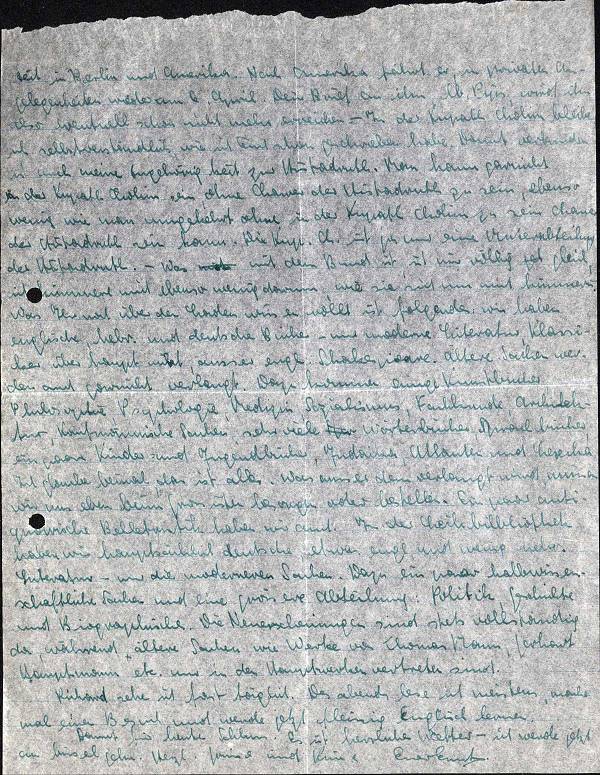 Zeit in Berlin und Amerika. Nach Amerika fährt er in privaten An-
gelegenheiten am 6. April. Dein Brief an ihn, wird ihn
also eventuell schon nicht mehr erreichen – In der Kupath Cholim bleibe
ich selbstverständlich wie ich Euch schon geschrieben habe. Damit verbunden
ist auch meine Zugehörigkeit zur Histadruth. Man kann garnicht
in der Kupath Cholim ein ohne Chawer der Histadruth zu sein, ebenso
wenig wie man umgekehrt ohne in der Kupath Cholim zu sein Chawer
der Histadruth sein kann. Die Kup. Ch. ist ja nur eine Unterabteilung
der Histadruth. – Was mit dem Bund ist ist mir völlig gleich,
ich kümmere mich ebenso wenig darum, wie sie sich um mich kümmern.
Was Ihr mal über den Laden wissen wollt ist folgendes: wir haben
englische, hebr. und deutsche Bücher – nur moderne Literatur, Klassi-
ker überhaupt nicht, ausser engl. Shakespeare. Ältere Sachen wer-
den auch garnicht verlangt. Dazu kommen einige Kunstbücher
Philosophie, Psychologie, Medizin, Sozialismus, Fachkunde, Architek-
tur, Kaufmännische Sachen, sehr viele Wörterbücher, Sprachbücher
ein paar Kinder- und Jugendbücher, Judaica, Atlanten und
Ich glaube beinah, das ist alles. Was ausserdem verlangt wird müssen
wir uns eben beim Grossisten besorgen oder bestellen. Ein paar anti-
quarische Belletristik haben wir auch. In der Leihbibliothek
haben wir hauptsächlich deutsche, etwas engl. und wenig hebr.
Literatur – nur die moderneren Sachen. Dazu ein paar halbwissen-
schaftliche Sachen und eine grössere Abteilung: Politik, Geschichte
und Biographisches. Die Neuerscheinungen sind stets vollständig
da während ältere Sachen wie Werke von Thomas Mann, Gerhart
Hauptmann etc. nur in den Hauptwerken vertreten sind.
Richard sehe ich fast täglich. Des abends lese ich meistens, mache
mal einen Besuch und werde jetzt fleissig Englisch lernen.
Damit für heute Schluss. Es ist herrliches Wetter – ich werde jetzt
ein bissel gehn. Grüsse und Küsse Euer